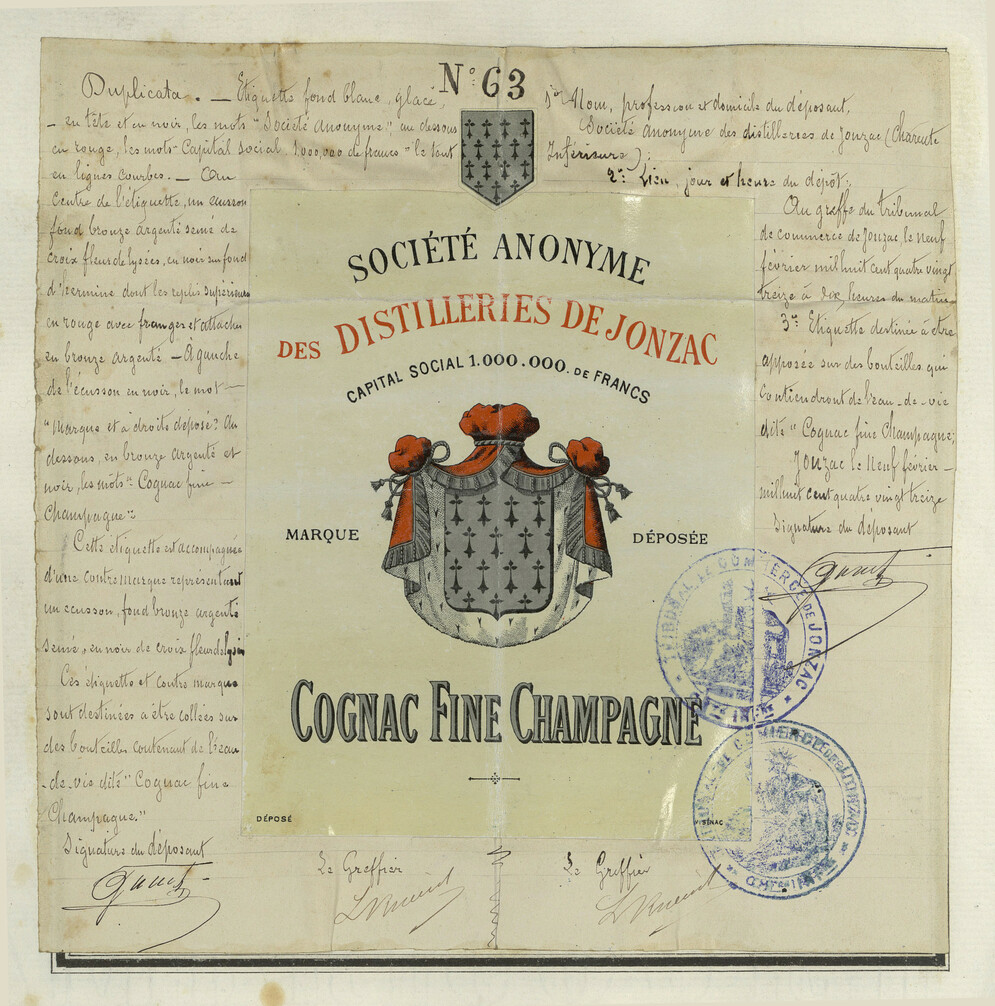 N° 63
Duplicata. — Etiquette fond blanc, glacé,
— en tête et en noir, les mots "Société Anonyme", au dessous
en rouge, les mots Capital social 1.000.000 de francs" le tout
en lignes courbes. — Au
Centre de l'étiquette, un écusson
fond bronze argenté semé de
croix fleurdelysées, en noir sur fond
d'hermine dont les replis supérieurs
en rouge avec franges et attaches
en bronze argenté — À gauche
de l'écusson en noir, le mot —
"Marque et à droite déposé". Au
dessous, en bronze argenté et
noir, les mots "Cognac fine —
Champagne".
Cette étiquette est accompagnée
d'une contre marque représentant
un ecusson, fond bronze argenté
semé, en noir de croix fleurdelysées
Ces étiquette et contre marque
sont destinées à être collées sur
des bouteilles contenant de l'eau
-de-vie dite "Cognac fine
Champagne."
Signature du déposant
1° Nom, profession et domicile du déposant.
Société Anonyme des distilleries de Jonzac (Charente
Inférieure);
2° Lieu, jour et heure du dépôt:
Au greffe du tribunal
de commerce de Jonzac le neuf
février mil huit cent quatre vingt
treize à dix heures du matin
3° Etiquette destinée à être
apposée sur des bouteilles qui
contiendront de l'eau-de-vie
dite "Cognac fine Champagne;
Jonzac le Neuf février —
mil huit cent quatre vingt treize
Signature du déposant
SOCIÉTÉ ANONYME
DES DISTILLERIES DE JONZAC
CAPITAL SOCIAL 1.000.000. DE FRANCS
MARQUE
DÉPOSÉE
COGNAC FINE CHAMPAGNE
DÉPOSÉ
TRIBUNAL DE COMMERCE DE JONZAC
TRIBUNAL DE COMMERCE DE JONZAC
Le Greffier
Le Greffier